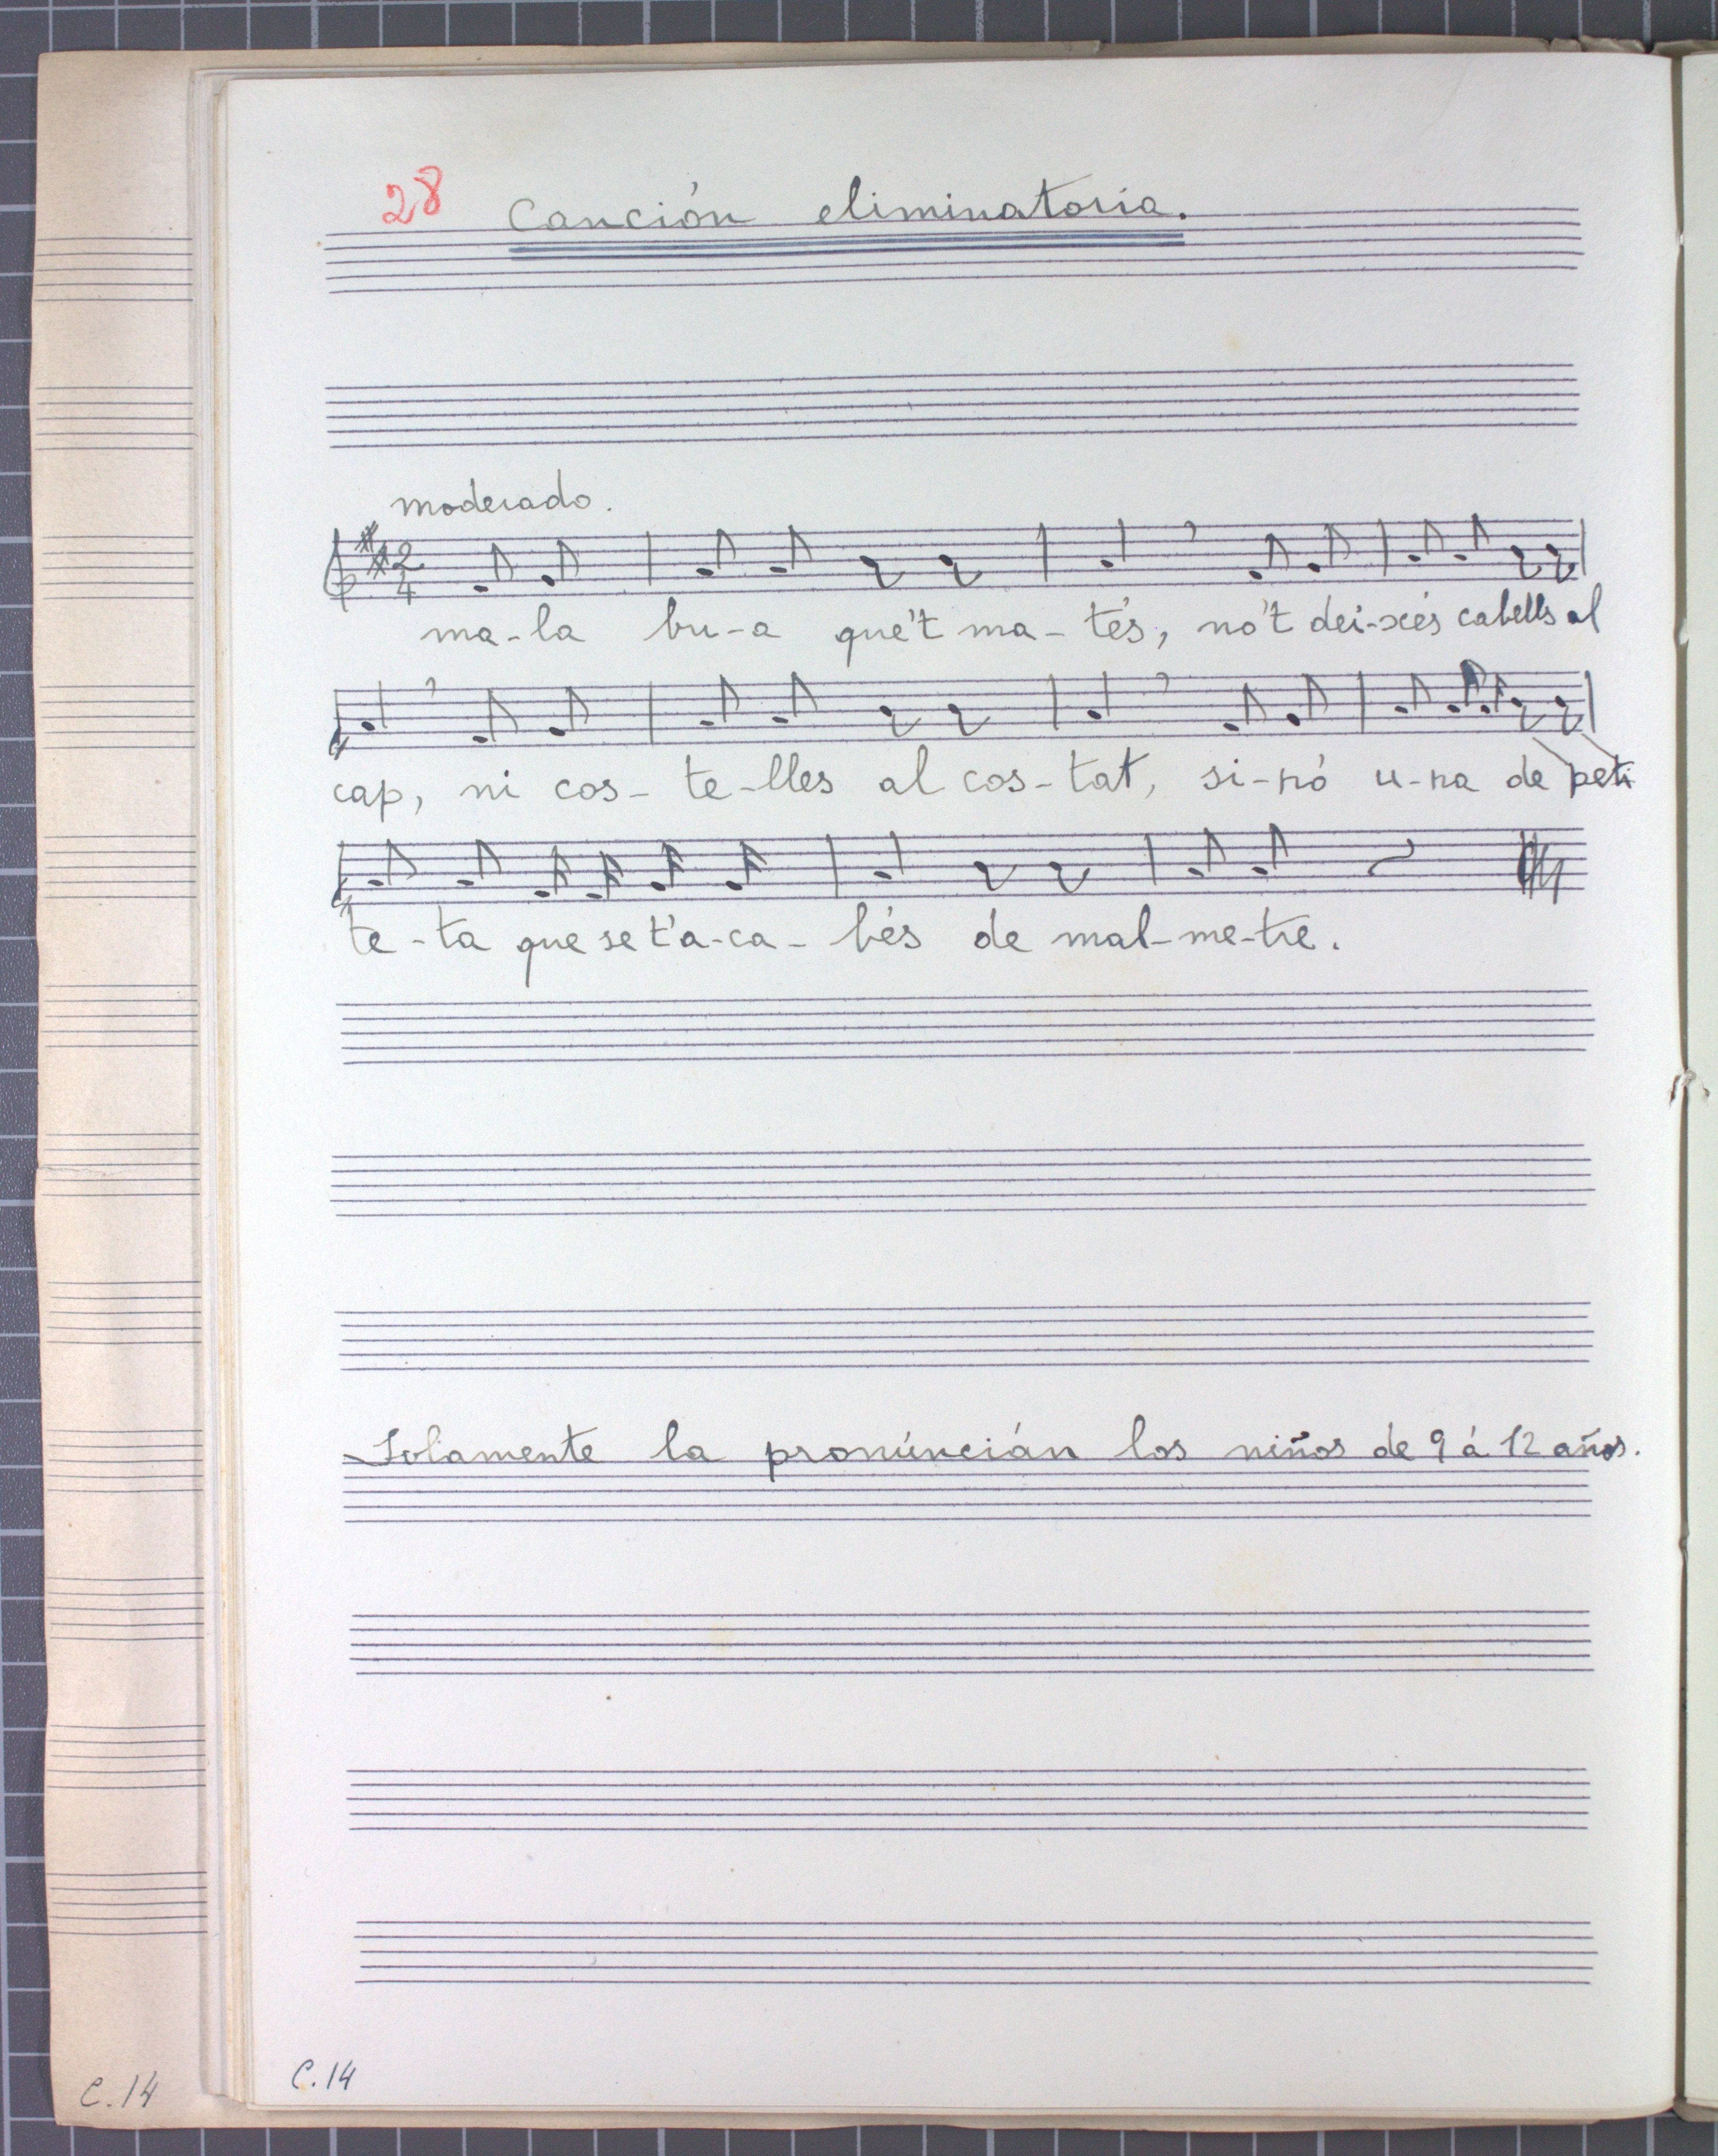 28 Canción eliminatoria.
moderado.
2
4
ma-la bu-a que't ma-tés, no't dei-xés cabells al
cap, ni cos-te-lles al cos-tat, si-nó u-na de peti
te-ta que se t'a-ca-bés de mal-me-tre.
Solamente la pronúncián los niños de 9 á 12 años.
C.14
C.14